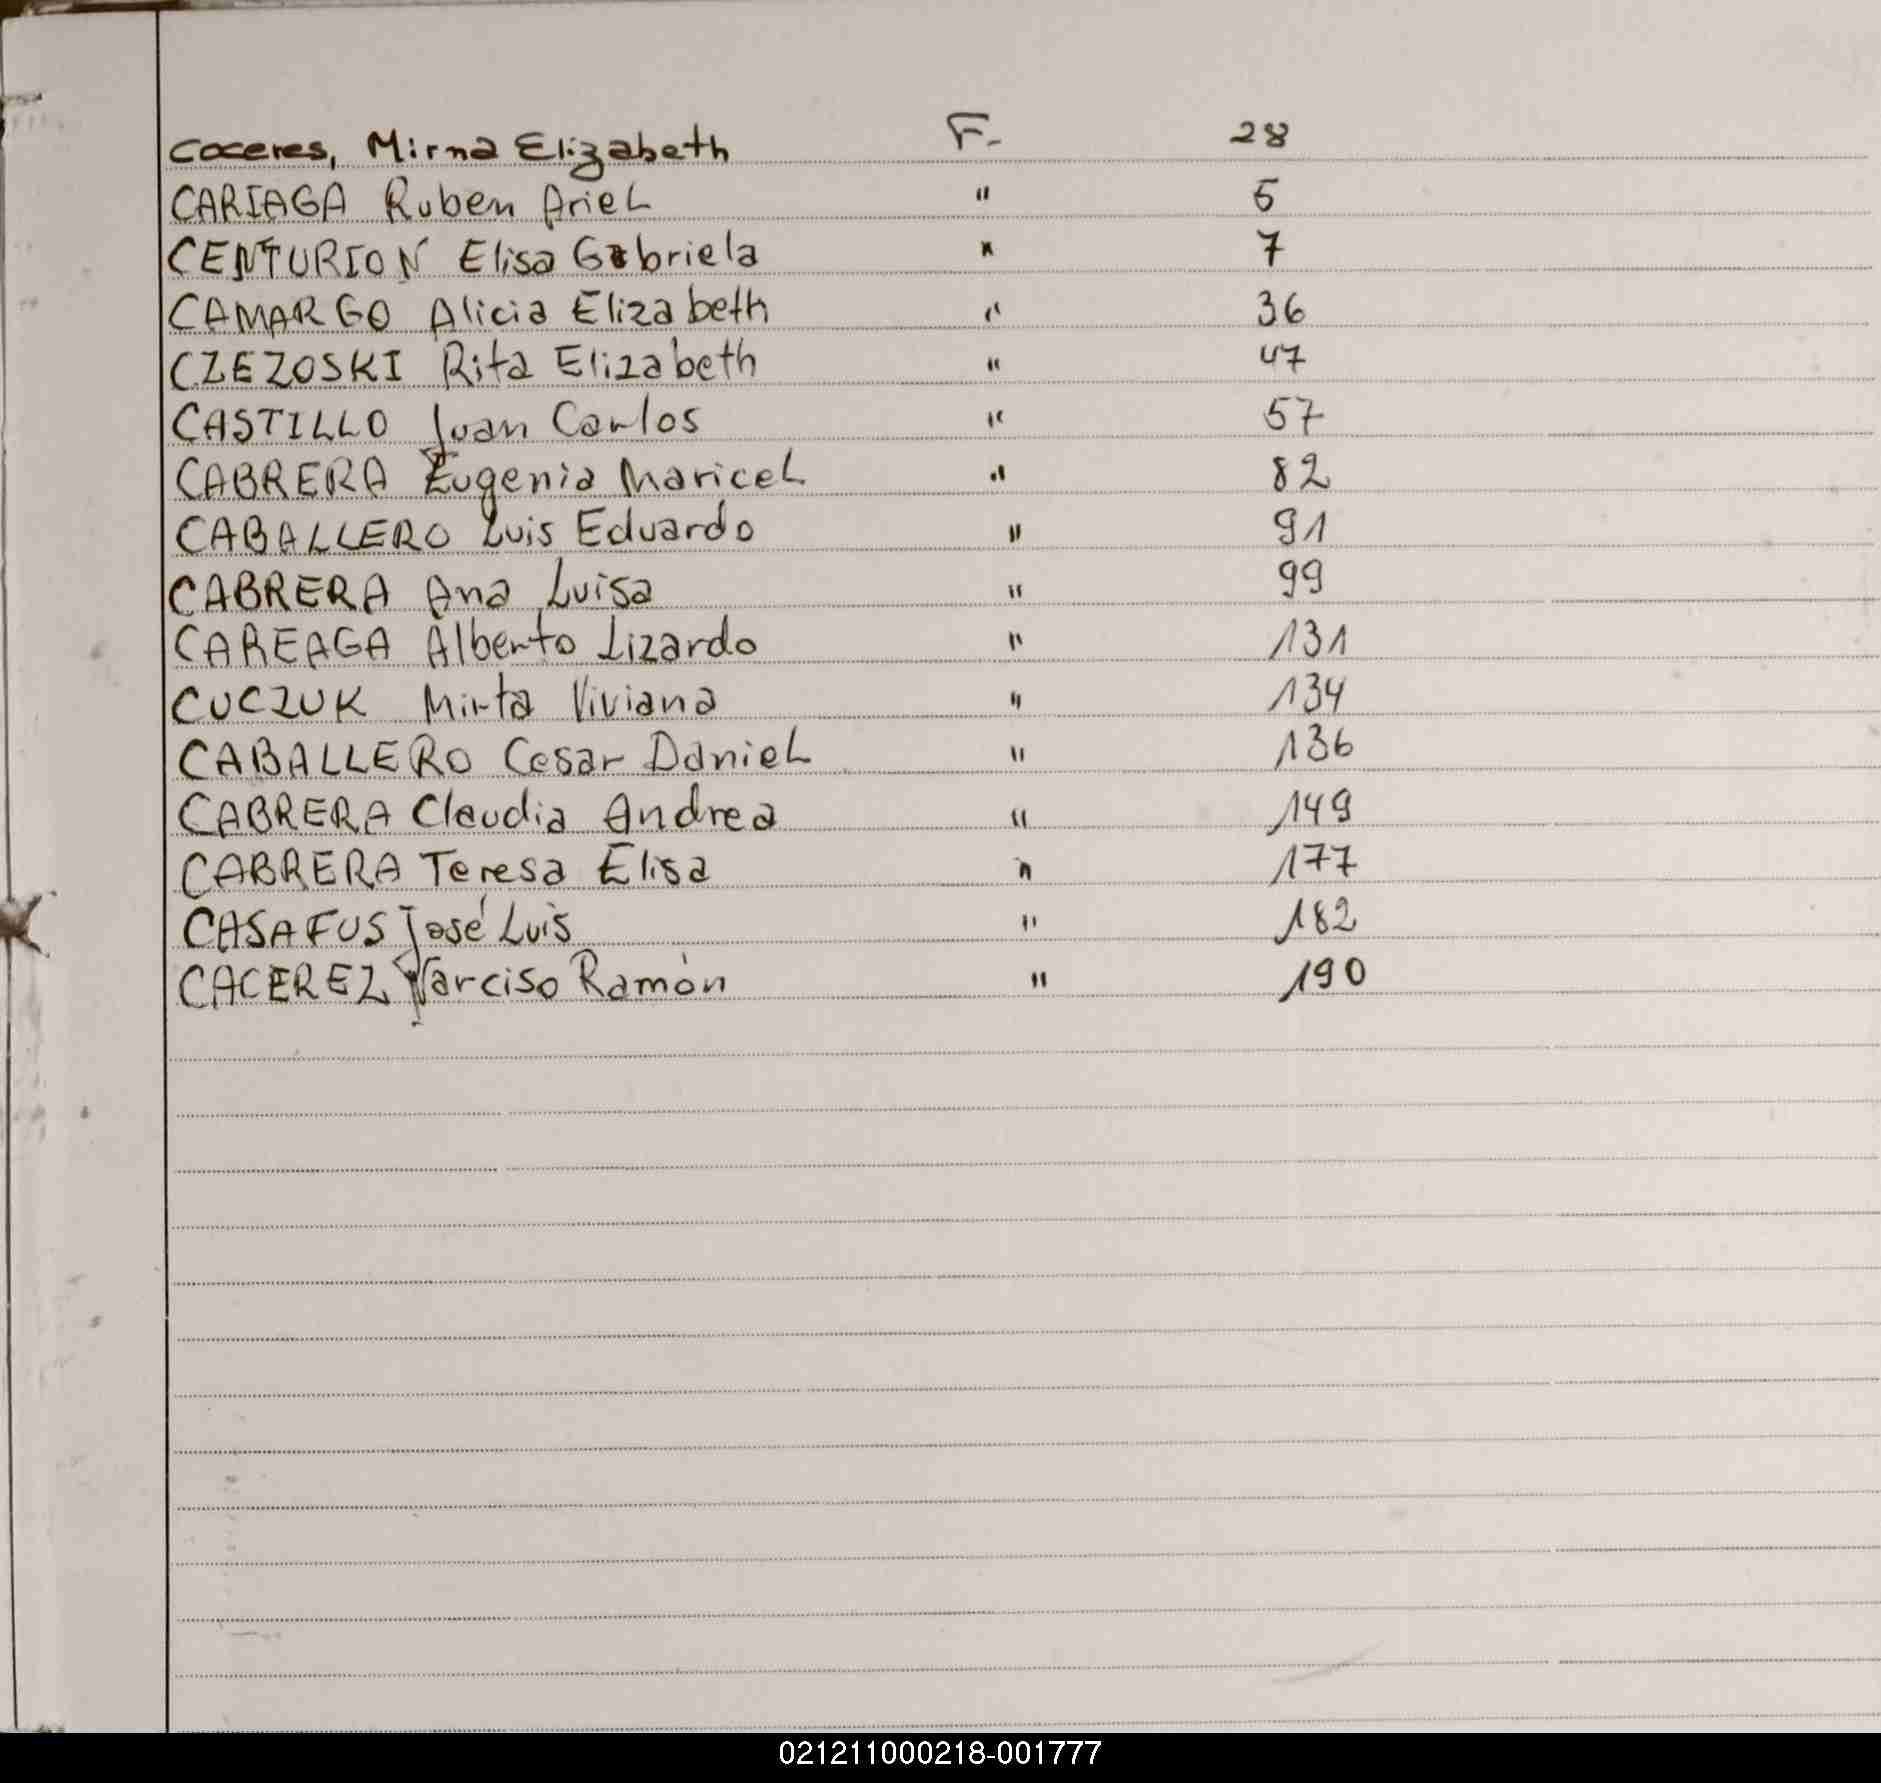 Coceres, Mirna Elizabeth F- 28
CARIAGA Ruben Ariel " 5
CENTURION Elisa Gabriela " 7
CAMARGO Alicia Elizabeth " 36
CZEZOSKI Rita Elizabeth " 47
CASTILLO Juan Carlos " 57
CABRERA Eugenia Maricel " 82
CABALLERO Luis Eduardo " 91
CABRERA Ana Luisa " 99
CAREAGA Alberto Lizardo " 131
CUCZUK Mirta Viviana " 134
CABALLERO Cesar Daniel " 136
CABRERA Claudia Andrea " 149
CABRERA Teresa Elisa " 177
CASAFUS José Luis " 182
CACEREZ Narciso Ramón " 190
021211000218-001777